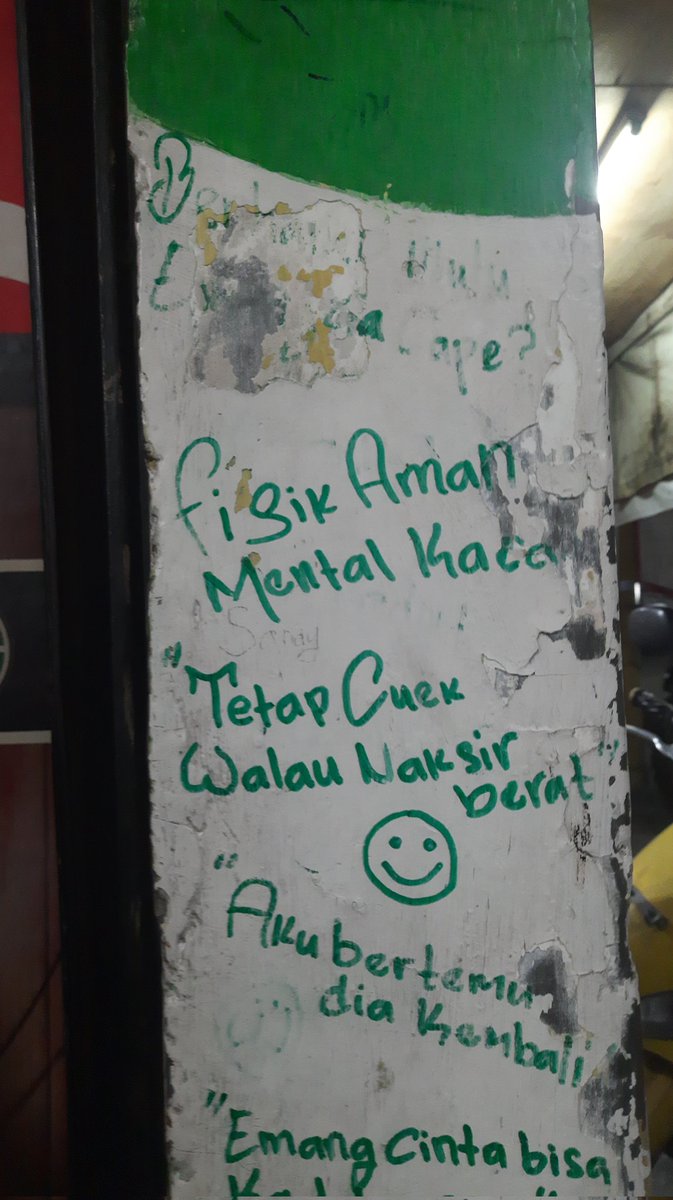 Mulu
ape?
Fisik Aman
Mental Kaca
Sandy
"Tetap Cuek
Walau Naksir
berat"
"Aku bertemu
dia Kembali
"Emang Cinta bisa